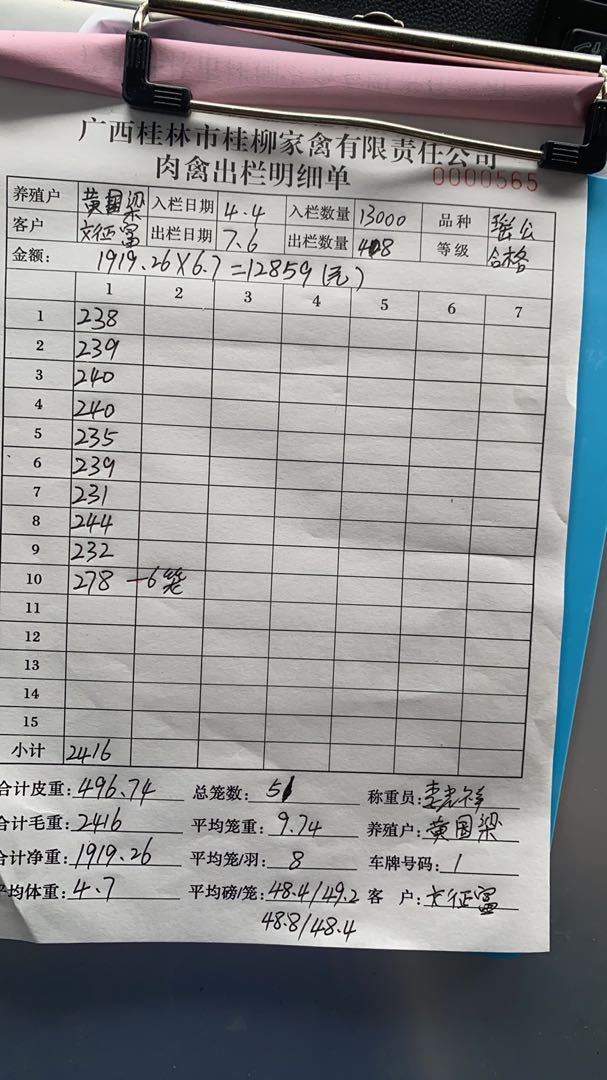 广西桂林市桂柳家禽有限责任公司
肉禽出栏明细单 0000565
养殖户 黄国梁 入栏日期 4.4 入栏数量 13000 品种 瑶公
客户 文征富 出栏日期 7.6 出栏数量 408 等级 合格
金额: 1919.26×6.7=12859(元)
1 2 3 4 5 6 7
1 238
2 239
3 240
4 240
5 235
6 239
7 231
8 244
9 232
10 278 -6笼
11
12
13
14
15
小计 2416
合计皮重: 496.74 总笼数: 51 称重员: 李
合计毛重: 2416 平均笼重: 9.74 养殖户: 黄国梁
合计净重: 1919.26 平均笼/羽: 8 车牌号码: 1
平均体重: 4.7 平均磅/笼: 48.4/49.2 客 户: 文征富
48.8/48.4